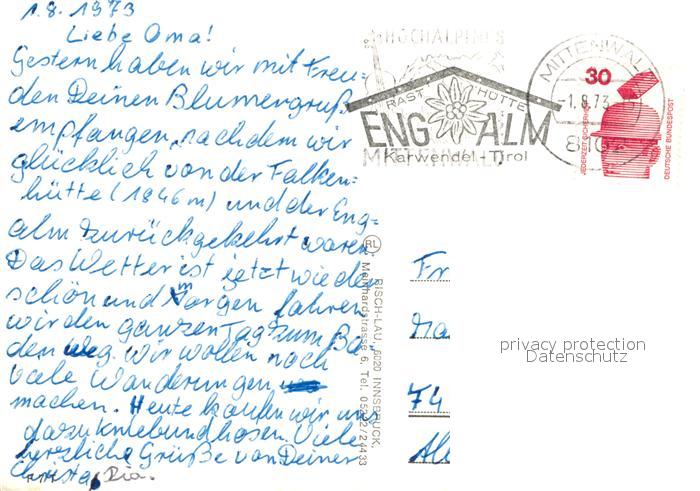 1.8.1973
Liebe Oma!
Gestern haben wir mit Freu-
den Deinen Blumengruß
empfangen, nachdem wir
glücklich von der Falken-
hütte (1846m) und der Eng-
alm zurückgekehrt waren.
Das Wetter ist jetzt wieder
schön und Morgen fahren
wir den ganzen Tag zum Ba-
den weg. Wir wollen noch
viele Wanderungen
machen. Heute kaufen wir uns
dazu Kniebundhosen. Viele
herzliche Grüße von Deiner
Christa, Dia.
HOCHALPINES
RAST HÜTTE
ENG ALM
MITTENWALD
Karwendel-Tirol
MITTENWALD
-1.8.73
8102
30
JEDERZEIT SICHERHEIT
DEUTSCHE BUNDESPOST
RL
RISCH-LAU, 6020 INNSBRUCK,
Meinhardstrasse 6, Tel. 05222/24433
Fr
74
privacy protection
Datenschutz